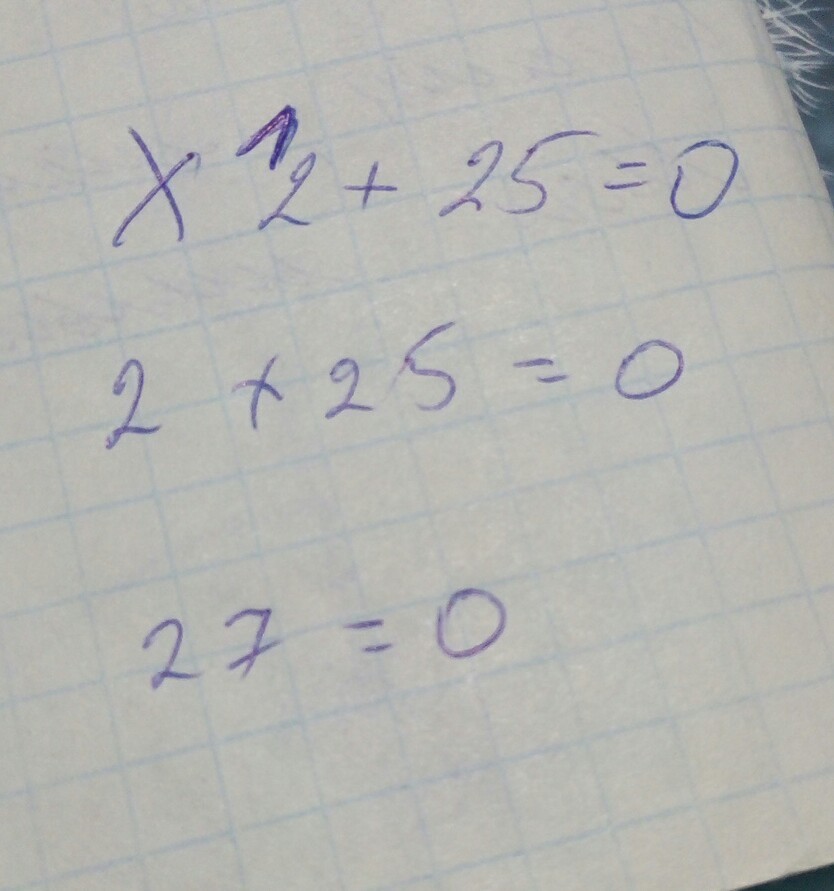 X^2 + 25 = 0
2 + 25 = 0
27 = 0